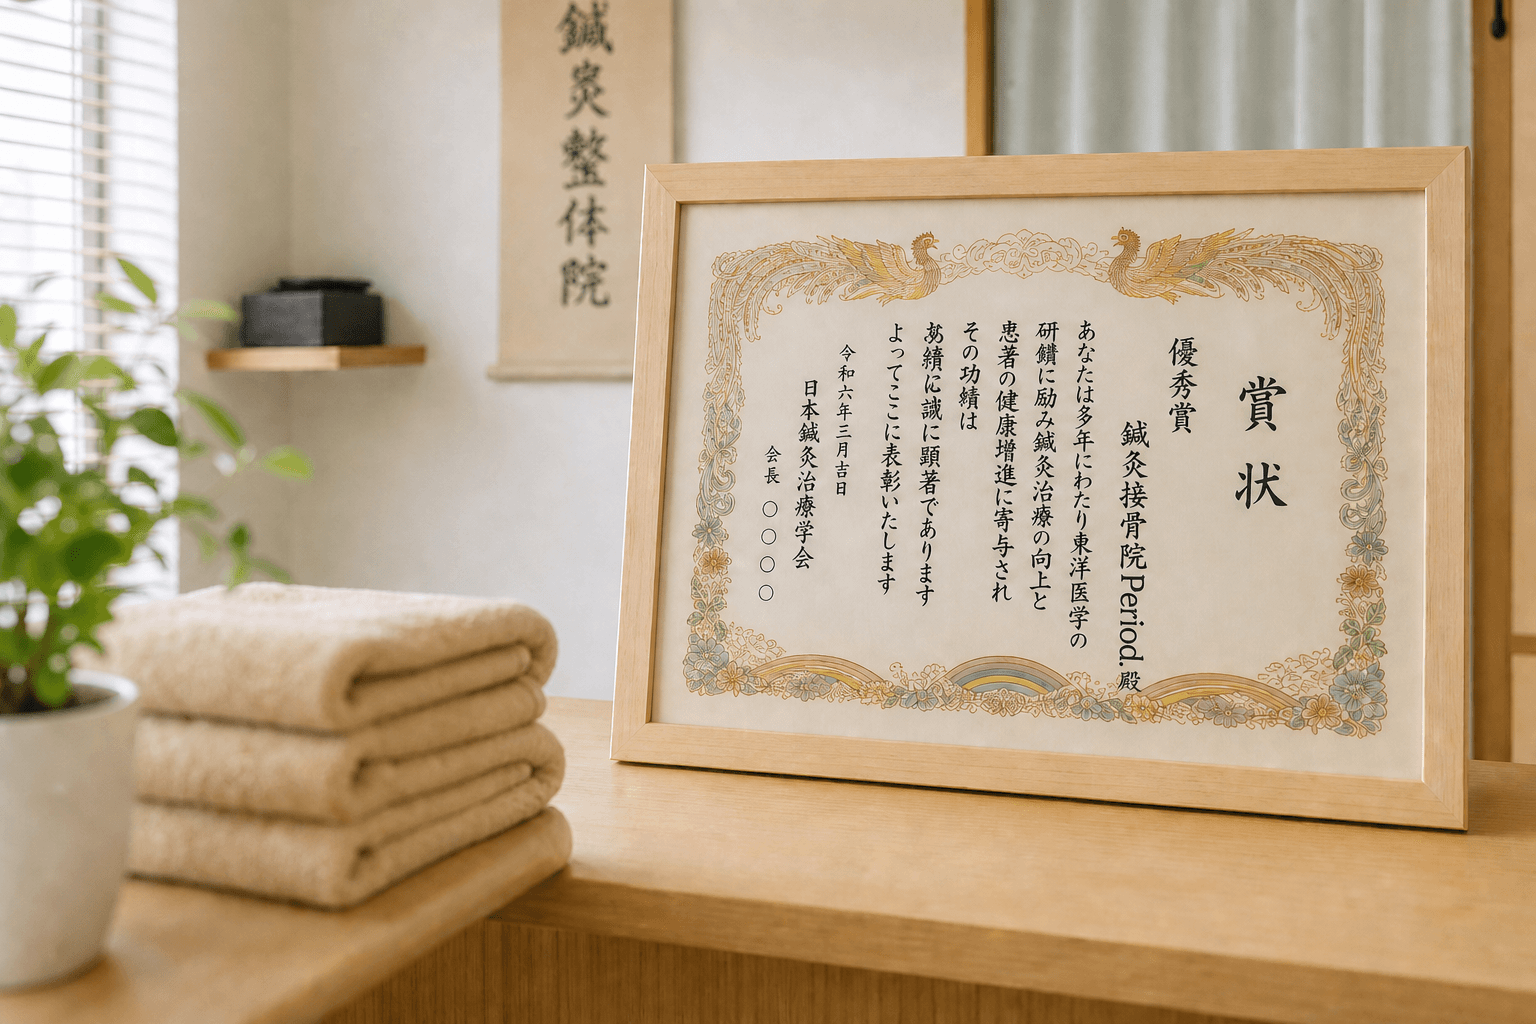 鍼灸整体院
賞状
優秀賞
鍼灸接骨院Period.殿
あなたは多年にわたり東洋医学の
研鑽に励み鍼灸治療の向上と
患者の健康増進に寄与され
その功績は
績に誠に顕著であります
よってここに表彰いたします
令和六年三月吉日
日本鍼灸治療学会
会長 〇〇〇〇